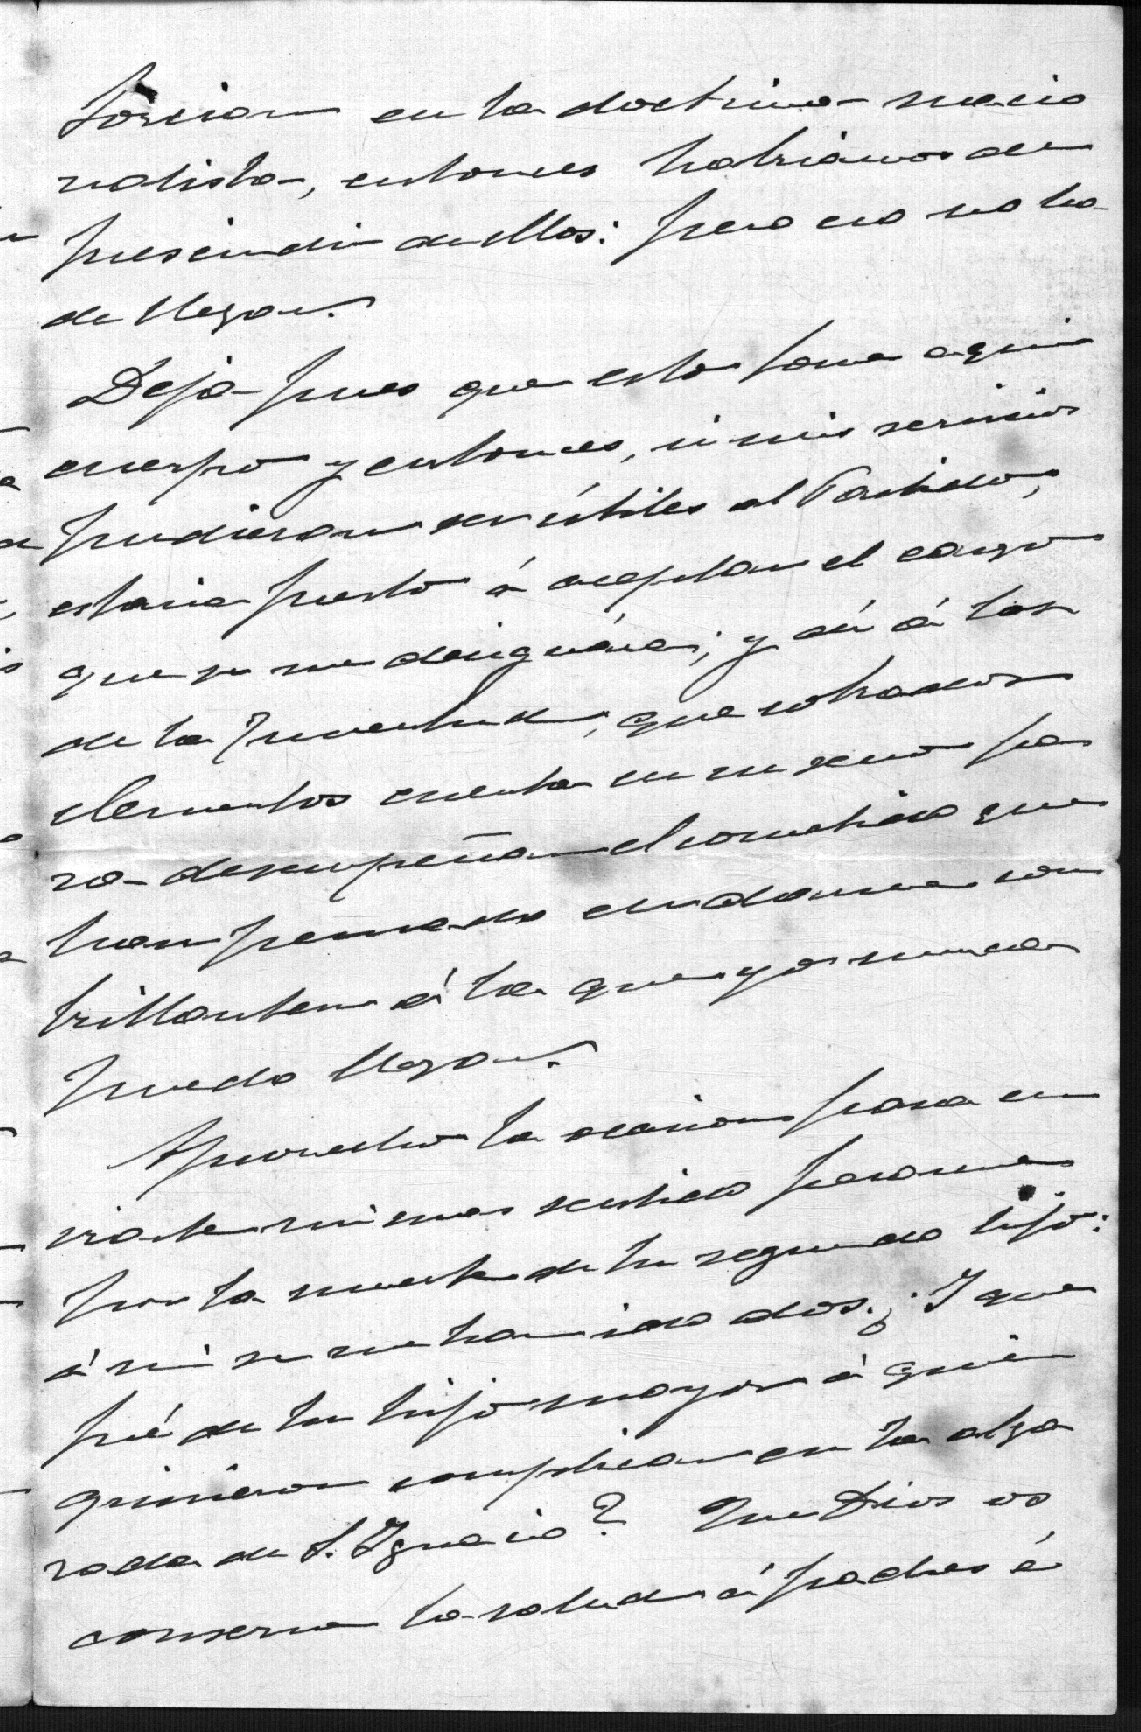 forcian en la doctrina nacio
nalista, entonces habriamos de
prescindir de ellos: pero eso no ha
de llegar.
Deja pues que esto tome aqui
cuerpo y entonces, si mis servicios
pudieran ser útiles al Partido,
estaria presto á aceptar el cargo
que se me designára; y dí á los
de la Juventud, que sobrados
elementos cuenta en su seno pa
ra desempeñar el cometido que
han pensado endosarme con
brillantez á la que yo nunca
puedo llegar.
Aprovecho la ocasion para en
viarte mi mas sentido pesame
por la muerte de tu segundo hijo:
á mi se me han ido dos. ¿Y que
fué de tu hijo mayor á quien
quisieron complicar en la alga
rada de S. Ignacio? Que Dios os
conserve la salud á padres é